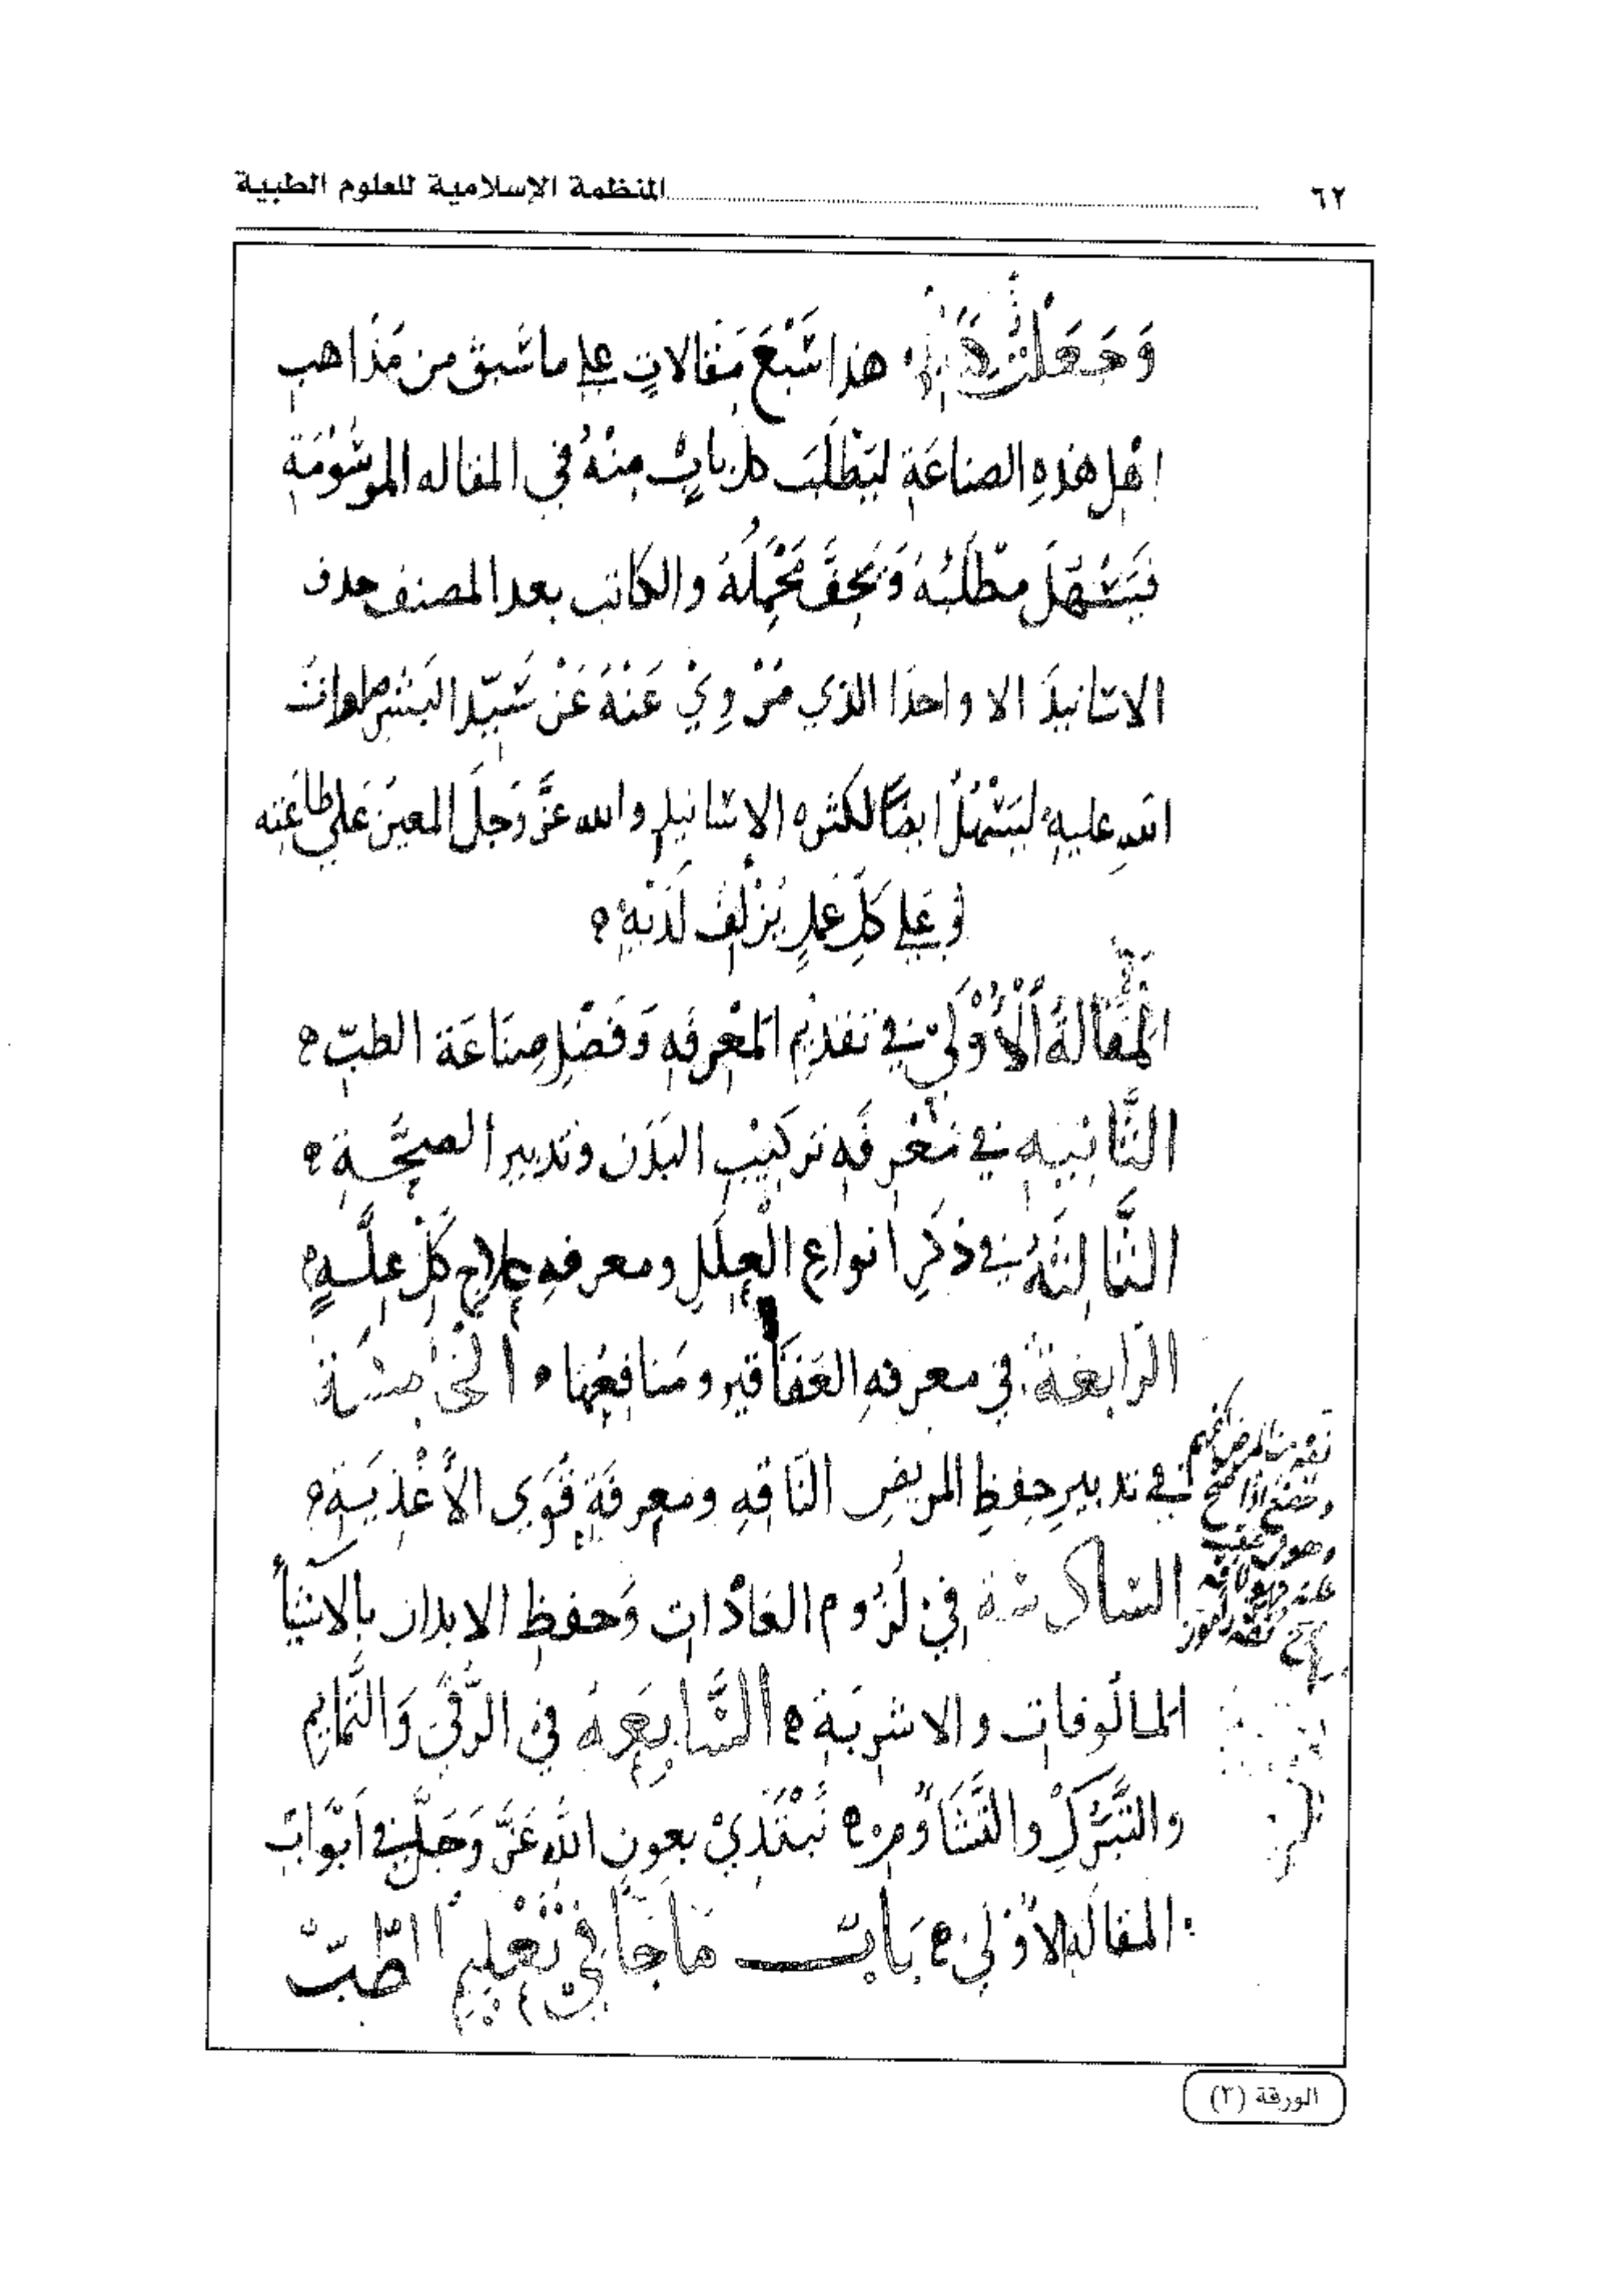 ٦٢ المنظمة الإسلامية للعلوم الطبية
وَجَعَلْتُ هذا سَبْعَ مَقالاتٍ على ما سَبق من مَذاهب
اهل هذه الصناعَةِ ليَطْلَبَ كل بابٍ مِنْهُ في المقاله الموسُومَةِ
فَيَسْهُلَ مطْلَبُهُ وَيَخِفَّ مَحْمَلُهُ والكاتب بعد المصنف حذف
الاسانيدَ الا واحدَا الذي مَرْوِيْ عَنْهُ عَنْ سَيّد البَشر صلوات
اللهِ عليهِ ليَسْهُلَ ايضًا لكثره الاسانيدِ والله عزَّ وَجلَ المعين عَلي طاعَتِه
وَعَلى كلِّ عَملٍ يُزْلِفُ لَدَيْهِ ه
المَقَالةُ اْلأُوْلَي في تَقدِيْمِ المَعْرفَهِ وَفَضْلِ صِنَاعَة الطبّ ه
الثَّانِيه في مَعْرِفَهِ تركيْبِ البَدَن وتدبير الصِحَّةِ ه
الثَّالثَةُ في ذكَرِ انواعِ الْعِلَلِ ومعرفهِ عِلاج كُلّ عِلّةٍ ه
الرَابعَة في معرفهِ العَقَاقير ومَنافِعِها ه الخامِسَة
في تدبيرِ حِفظِ المريضِ النَاقِهِ ومَعِرفَةِ قُوَي الأَغْذِيَةِ ه
السَادسَة في لُزُوم العَادَاتِ وَحفظِ الابدان بالاشيَأ
المالُوفات والاشرِبَة ه السَّابِعَة في الرُّقَي وَالتَمايِم
والتَبَرُّكِ والتَّشَاؤُمِ ه نَبْتَدِيْ بعونِ اللهِ عَزَّ وَجَلَّ في اَبْوَابِ
المقالَهِ الاُوْلَي ه بَابُ مَا جَا في تَعْلِيمِ الطِّبّ
الورقة (٣)